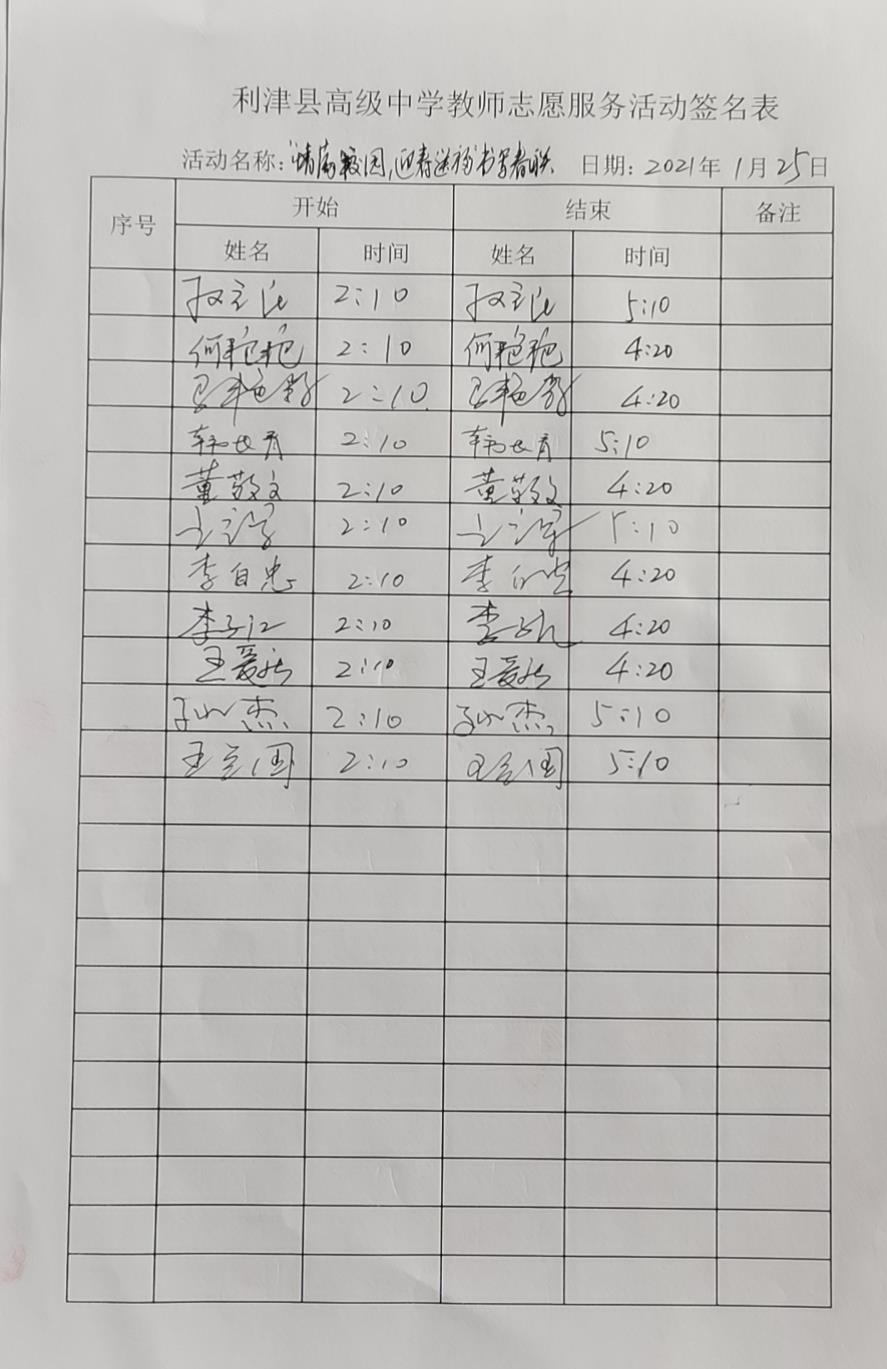 利津县高级中学教师志愿服务活动签名表
活动名称："情满校园,迎春送福"书写春联 日期：2021年1月25日
序号 开始 结束 备注
姓名 时间 姓名 时间
2:10 5:10
何艳艳 2:10 何艳艳 4:20
2:10. 4:20
韩长青 2:10 韩长青 5:10
董敬文 2:10 董敬文 4:20
2:10 5:10
李自忠 2:10 李自忠 4:20
李 2:10 李 4:20
王爱 2:10 王爱 4:20
孙杰 2:10 孙杰 5:10
王立国 2:10 王立国 5:10